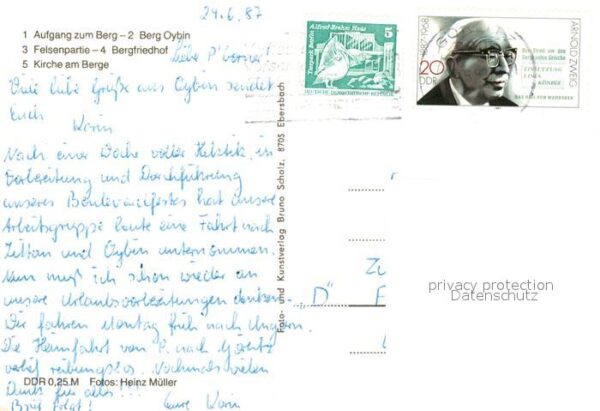 24.6.87
1 Aufgang zum Berg – 2 Berg Oybin
3 Felsenpartie – 4 Bergfriedhof
5 Kirche am Berge
Liebe
Viele liebe Grüße aus Oybin sendet
Euch
Karin
Nach einer Woche voller Hektik in
Vorbereitung und Durchführung
unseres Boulevardfestes hat unsere
Arbeitsgruppe heute eine Fahrt nach
Zittau und Oybin unternommen.
Nun muß ich schon wieder an
unsere Urlaubsvorbereitungen denken.
Wir fahren Montag früh nach Ungarn.
Die Heimfahrt von P. nach Görlitz
verlief reibungslos. Nochmals vielen
Dank für alles!!!
Brief folgt! Eure Karin
DDR 0,25 M Fotos: Heinz Müller
Foto- und Kunstverlag Bruno Scholz, 8705 Ebersbach
Alfred-Brehm-Haus
Tierpark Berlin
5
DEUTSCHE DEMOKRATISCHE REPUBLIK
1887-1968
20
DDR
ARNOLD ZWEIG
Der Streit um den
Sergeanten Grischa
EINSETZUNG
EINES
KÖNIGS
DAS BEIL VON WANDSBEK
"D"
privacy protection
Datenschutz